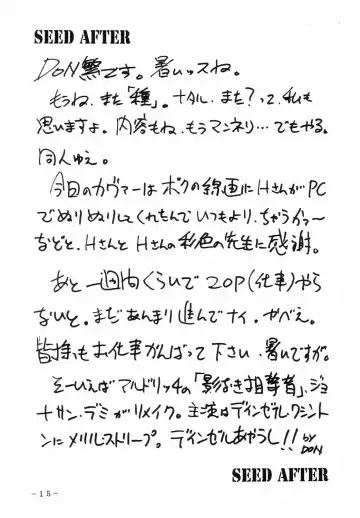 SEED AFTER
DON繁です。暑いッスね。
もうね、また「種」。ナタル、また?って、私も
思いますよ。内容もね、もうマンネリ…でもやる。
同人ゆえ。
今回のカヴァーはボクの線画にHさんがPC
でぬりぬりしてくれたんでいつもより、ちゃうかっ〜
などと、HさんとHさんの彩色の先生に感謝。
あと一週間くらいで20P(仕事)やら
ないと。まだあんまり進んでナイ、かべえ。
皆様もお仕事がんばって下さい、暑いですが。
そーいえばアルドリッチの「影なき狙撃者」、ジョ
ナサン・デミがリメイク。主演はデインゼル・ワシント
ンにメリル・ストリープ。デインゼルあやうし!! by DON
SEED AFTER
-15-